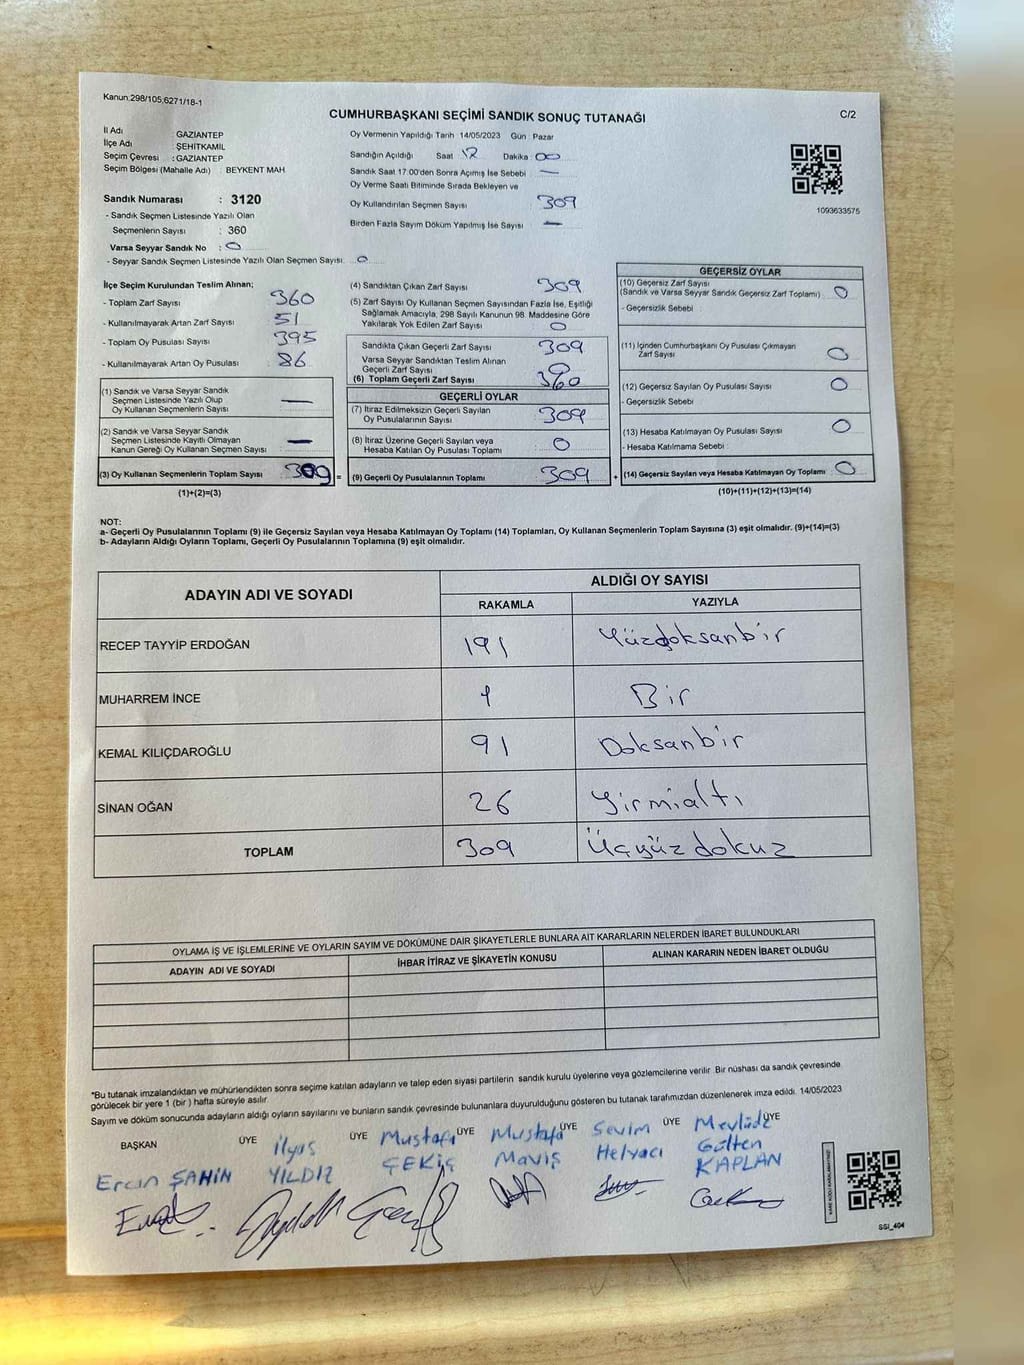 Kanun.298/105,6271/18-1
CUMHURBAŞKANI SEÇİMİ SANDIK SONUÇ TUTANAĞI
C/2
İl Adı GAZİANTEP
İlçe Adı ŞEHİTKAMİL
Seçim Çevresi : GAZİANTEP
Seçim Bölgesi (Mahalle Adı) BEYKENT MAH
Sandık Numarası : 3120
- Sandık Seçmen Listesinde Yazılı Olan
Seçmenlerin Sayısı : 360
Varsa Seyyar Sandık No : 0
- Seyyar Sandık Seçmen Listesinde Yazılı Olan Seçmen Sayısı: 0
Oy Vermenin Yapıldığı Tarih 14/05/2023 Gün : Pazar
Sandığın Açıldığı Saat 12 Dakika : 00
Sandık Saat 17.00'den Sonra Açımış İse Sebebi —
Oy Verme Saati Bitiminde Sırada Bekleyen ve
Oy Kullandırılan Seçmen Sayısı 309
Birden Fazla Sayım Döküm Yapılmış İse Sayısı —
1093633575
İlçe Seçim Kurulundan Teslim Alınan;
- Toplam Zarf Sayısı 360
- Kullanılmayarak Artan Zarf Sayısı 51
- Toplam Oy Pusulası Sayısı 395
- Kullanılmayarak Artan Oy Pusulası 86
(1) Sandık ve Varsa Seyyar Sandık
Seçmen Listesinde Yazılı Olup
Oy Kullanan Seçmenlerin Sayısı —
(2) Sandık ve Varsa Seyyar Sandık
Seçmen Listesinde Kayıtlı Olmayan
Kanun Gereği Oy Kullanan Seçmen Sayısı —
(3) Oy Kullanan Seçmenlerin Toplam Sayısı 309 =
(1)+(2)=(3)
(4) Sandıktan Çıkan Zarf Sayısı 309
(5) Zarf Sayısı Oy Kullanan Seçmen Sayısından Fazla İse, Eşitliği
Sağlamak Amacıyla, 298 Sayılı Kanunun 98. Maddesine Göre
Yakılarak Yok Edilen Zarf Sayısı 0
Sandıkta Çıkan Geçerli Zarf Sayısı 309
Varsa Seyyar Sandıktan Teslim Alınan
Geçerli Zarf Sayısı 0
(6) Toplam Geçerli Zarf Sayısı 360
GEÇERLİ OYLAR
(7) İtiraz Edilmeksizin Geçerli Sayılan
Oy Pusulalarının Sayısı 309
(8) İtiraz Üzerine Geçerli Sayılan veya
Hesaba Katılan Oy Pusulası Toplamı 0
(9) Geçerli Oy Pusulalarının Toplamı 309 +
GEÇERSİZ OYLAR
(10) Geçersiz Zarf Sayısı
(Sandık ve Varsa Seyyar Sandık Geçersiz Zarf Toplamı) 0
- Geçersizlik Sebebi :
(11) İçinden Cumhurbaşkanı Oy Pusulası Çıkmayan
Zarf Sayısı 0
(12) Geçersiz Sayılan Oy Pusulası Sayısı 0
- Geçersizlik Sebebi
(13) Hesaba Katılmayan Oy Pusulası Sayısı 0
- Hesaba Katılmama Sebebi
(14) Geçersiz Sayılan veya Hesaba Katılmayan Oy Toplamı 0
(10)+(11)+(12)+(13)=(14)
NOT:
a- Geçerli Oy Pusulalarının Toplamı (9) ile Geçersiz Sayılan veya Hesaba Katılmayan Oy Toplamı (14) Toplamları, Oy Kullanan Seçmenlerin Toplam Sayısına (3) eşit olmalıdır. (9)+(14)=(3)
b- Adayların Aldığı Oyların Toplamı, Geçerli Oy Pusulalarının Toplamına (9) eşit olmalıdır.
ADAYIN ADI VE SOYADI ALDIĞI OY SAYISI
RAKAMLA YAZIYLA
RECEP TAYYİP ERDOĞAN 191 Yüzdoksanbir
MUHARREM İNCE 1 Bir
KEMAL KILIÇDAROĞLU 91 Doksanbir
SİNAN OĞAN 26 Yirmialtı
TOPLAM 309 Üçyüzdokuz
OYLAMA İŞ VE İŞLEMLERİNE VE OYLARIN SAYIM VE DÖKÜMÜNE DAİR ŞİKAYETLERLE BUNLARA AİT KARARLARIN NELERDEN İBARET BULUNDUKLARI
ADAYIN ADI VE SOYADI İHBAR İTİRAZ VE ŞİKAYETİN KONUSU ALINAN KARARIN NEDEN İBARET OLDUĞU
*Bu tutanak imzalandıktan ve mühürlendikten sonra seçime katılan adayların ve talep eden siyasi partilerin sandık kurulu üyelerine veya gözlemcilerine verilir. Bir nüshası da sandık çevresinde
görülecek bir yere 1 (bir) hafta süreyle asılır.
Sayım ve döküm sonucunda adayların aldığı oyların sayılarını ve bunların sandık çevresinde bulunanlara duyurulduğunu gösteren bu tutanak tarafımızdan düzenlenerek imza edildi. 14/05/2023
BAŞKAN ÜYE ÜYE ÜYE ÜYE ÜYE ÜYE
Ercan ŞAHİN
İlyas YILDIZ
Mustafa ÇEKİÇ
Mustafa Maviş
Sevim Helvacı
Mevlüde Gülten KAPLAN
SSI_404